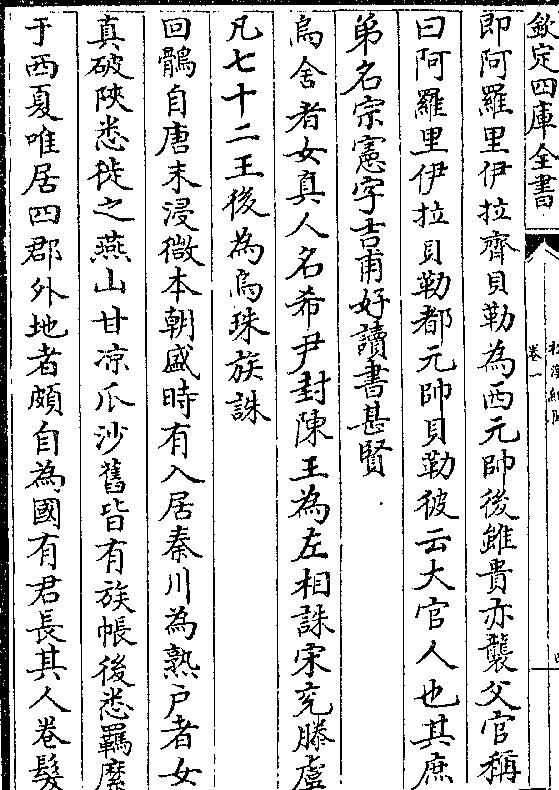 欽定四庫全書
卷一
即阿羅里伊拉齊貝勒為西元帥後雖貴亦襲父官稱
曰阿羅里伊拉貝勒都元帥貝勒彼云大官人也其庶
弟名宗憲字吉甫好讀書甚賢
烏舍者女真人名希尹封陳王為左相誅宋兖滕虞
凡七十二王後為烏珠族誅
回鶻自唐末浸微本朝盛時有入居秦川為熟户者女
真破陜悉徙之燕山甘凉瓜沙舊皆有族帳後悉羈縻
于西夏唯居四郡外地者頗自為國有君長其人卷髮